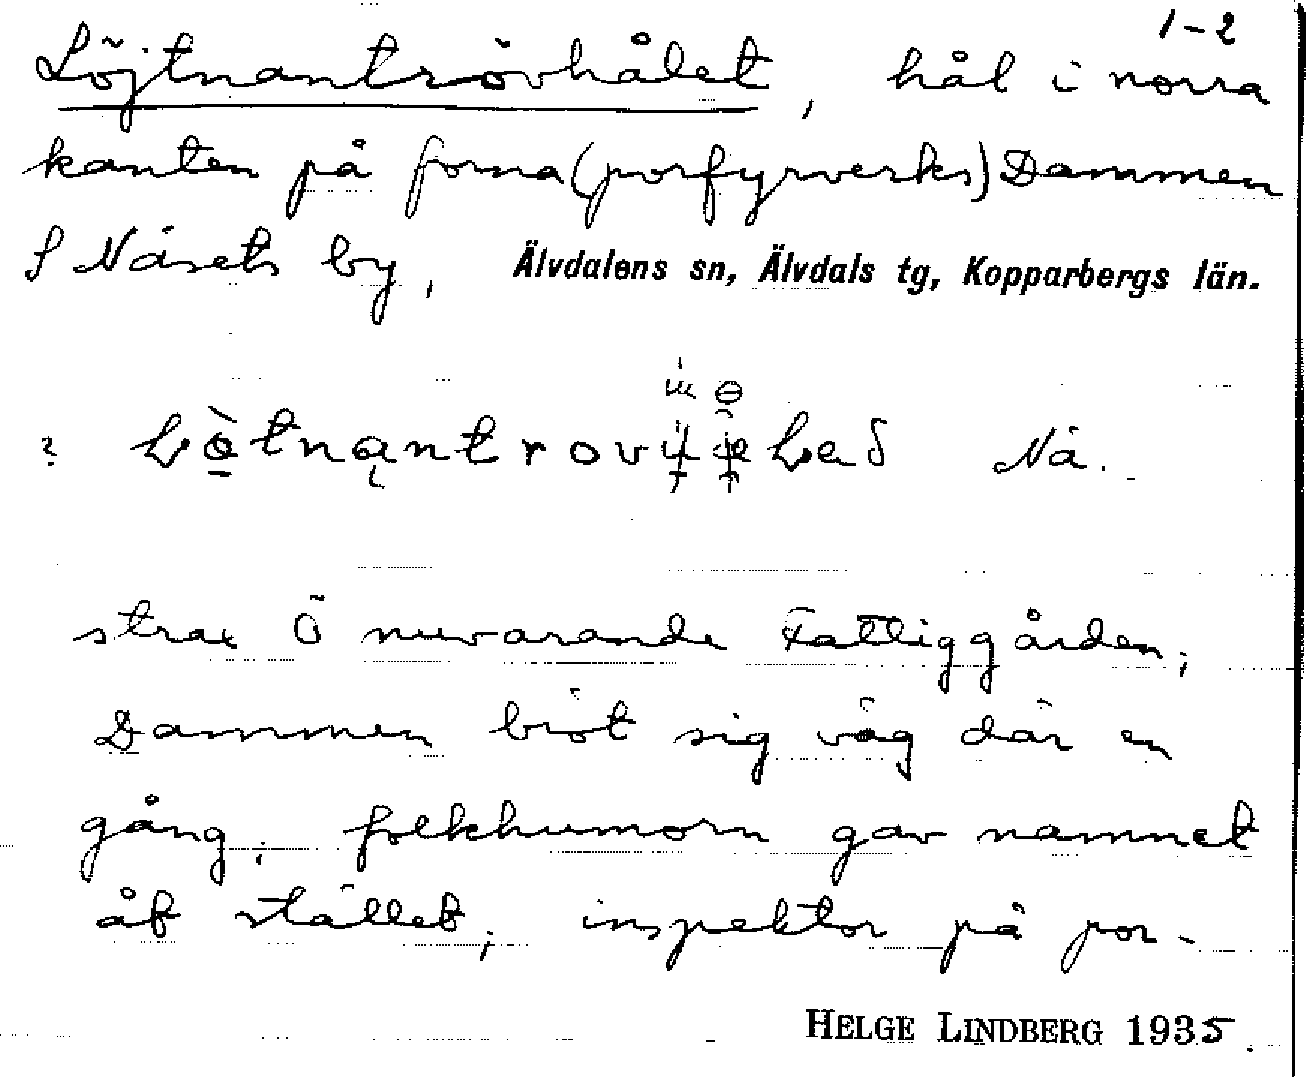 1-2
Löjtnantrövhålet, hål i norra
kanten på forna (porfyrverks) Dammen
S Näsets by, Älvdalens sn, Älvdals tg, Kopparbergs län.
Nä.
strax Ö nuvarande Fattiggården,
Dammen bröt sig väg där en
gång; folkhumorn gav namnet
åt stället; inspektor på por-
HELGE LINDBERG 1935.